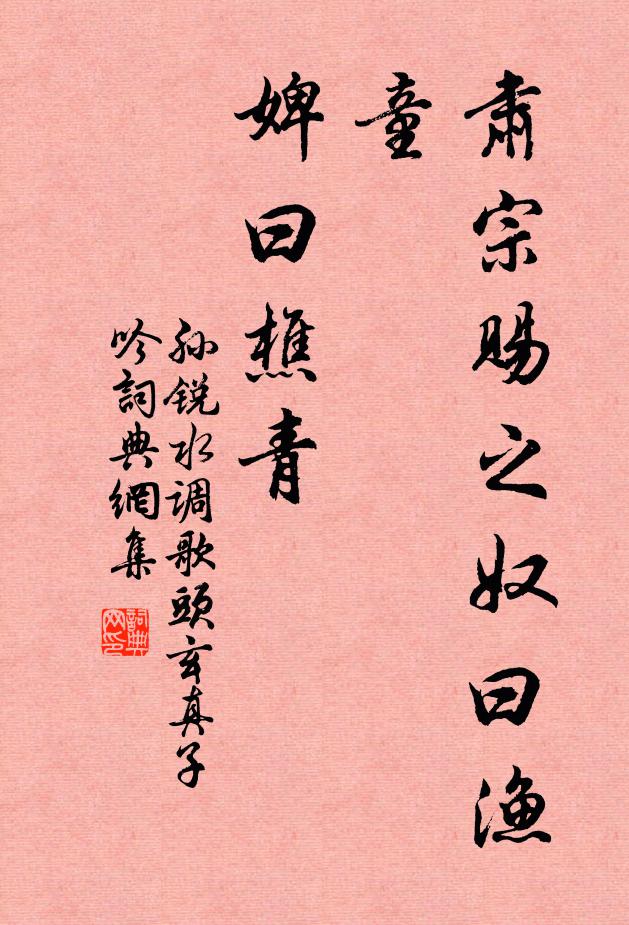 肃宗赐之奴曰渔
童
婢曰樵青
孙锐水调歌頭玄真子
吟詞典網集
詞典
网印